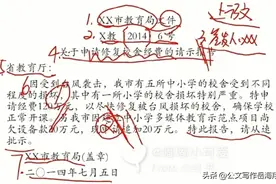 上行文
1.
XX市教育局文件
签发人:XXX
2.
X教 2014 6号
4.
关于申请修复校舍经费的请示报告
5.
省教育厅:
因受到台风袭击,我市有五所中小学的校舍受到不同
程度的损坏,其中有一所小学的校舍损坏特别严重。特申
请经费120万元,以尽快修复被台风损坏的校舍,确保学校
正常开课。
欠设备款 万元,
加20万元。特此报告,请从速
批示。
7.
XX市教育局(盖章)
二〇一四年七月五日
头条 @公文写作岳海